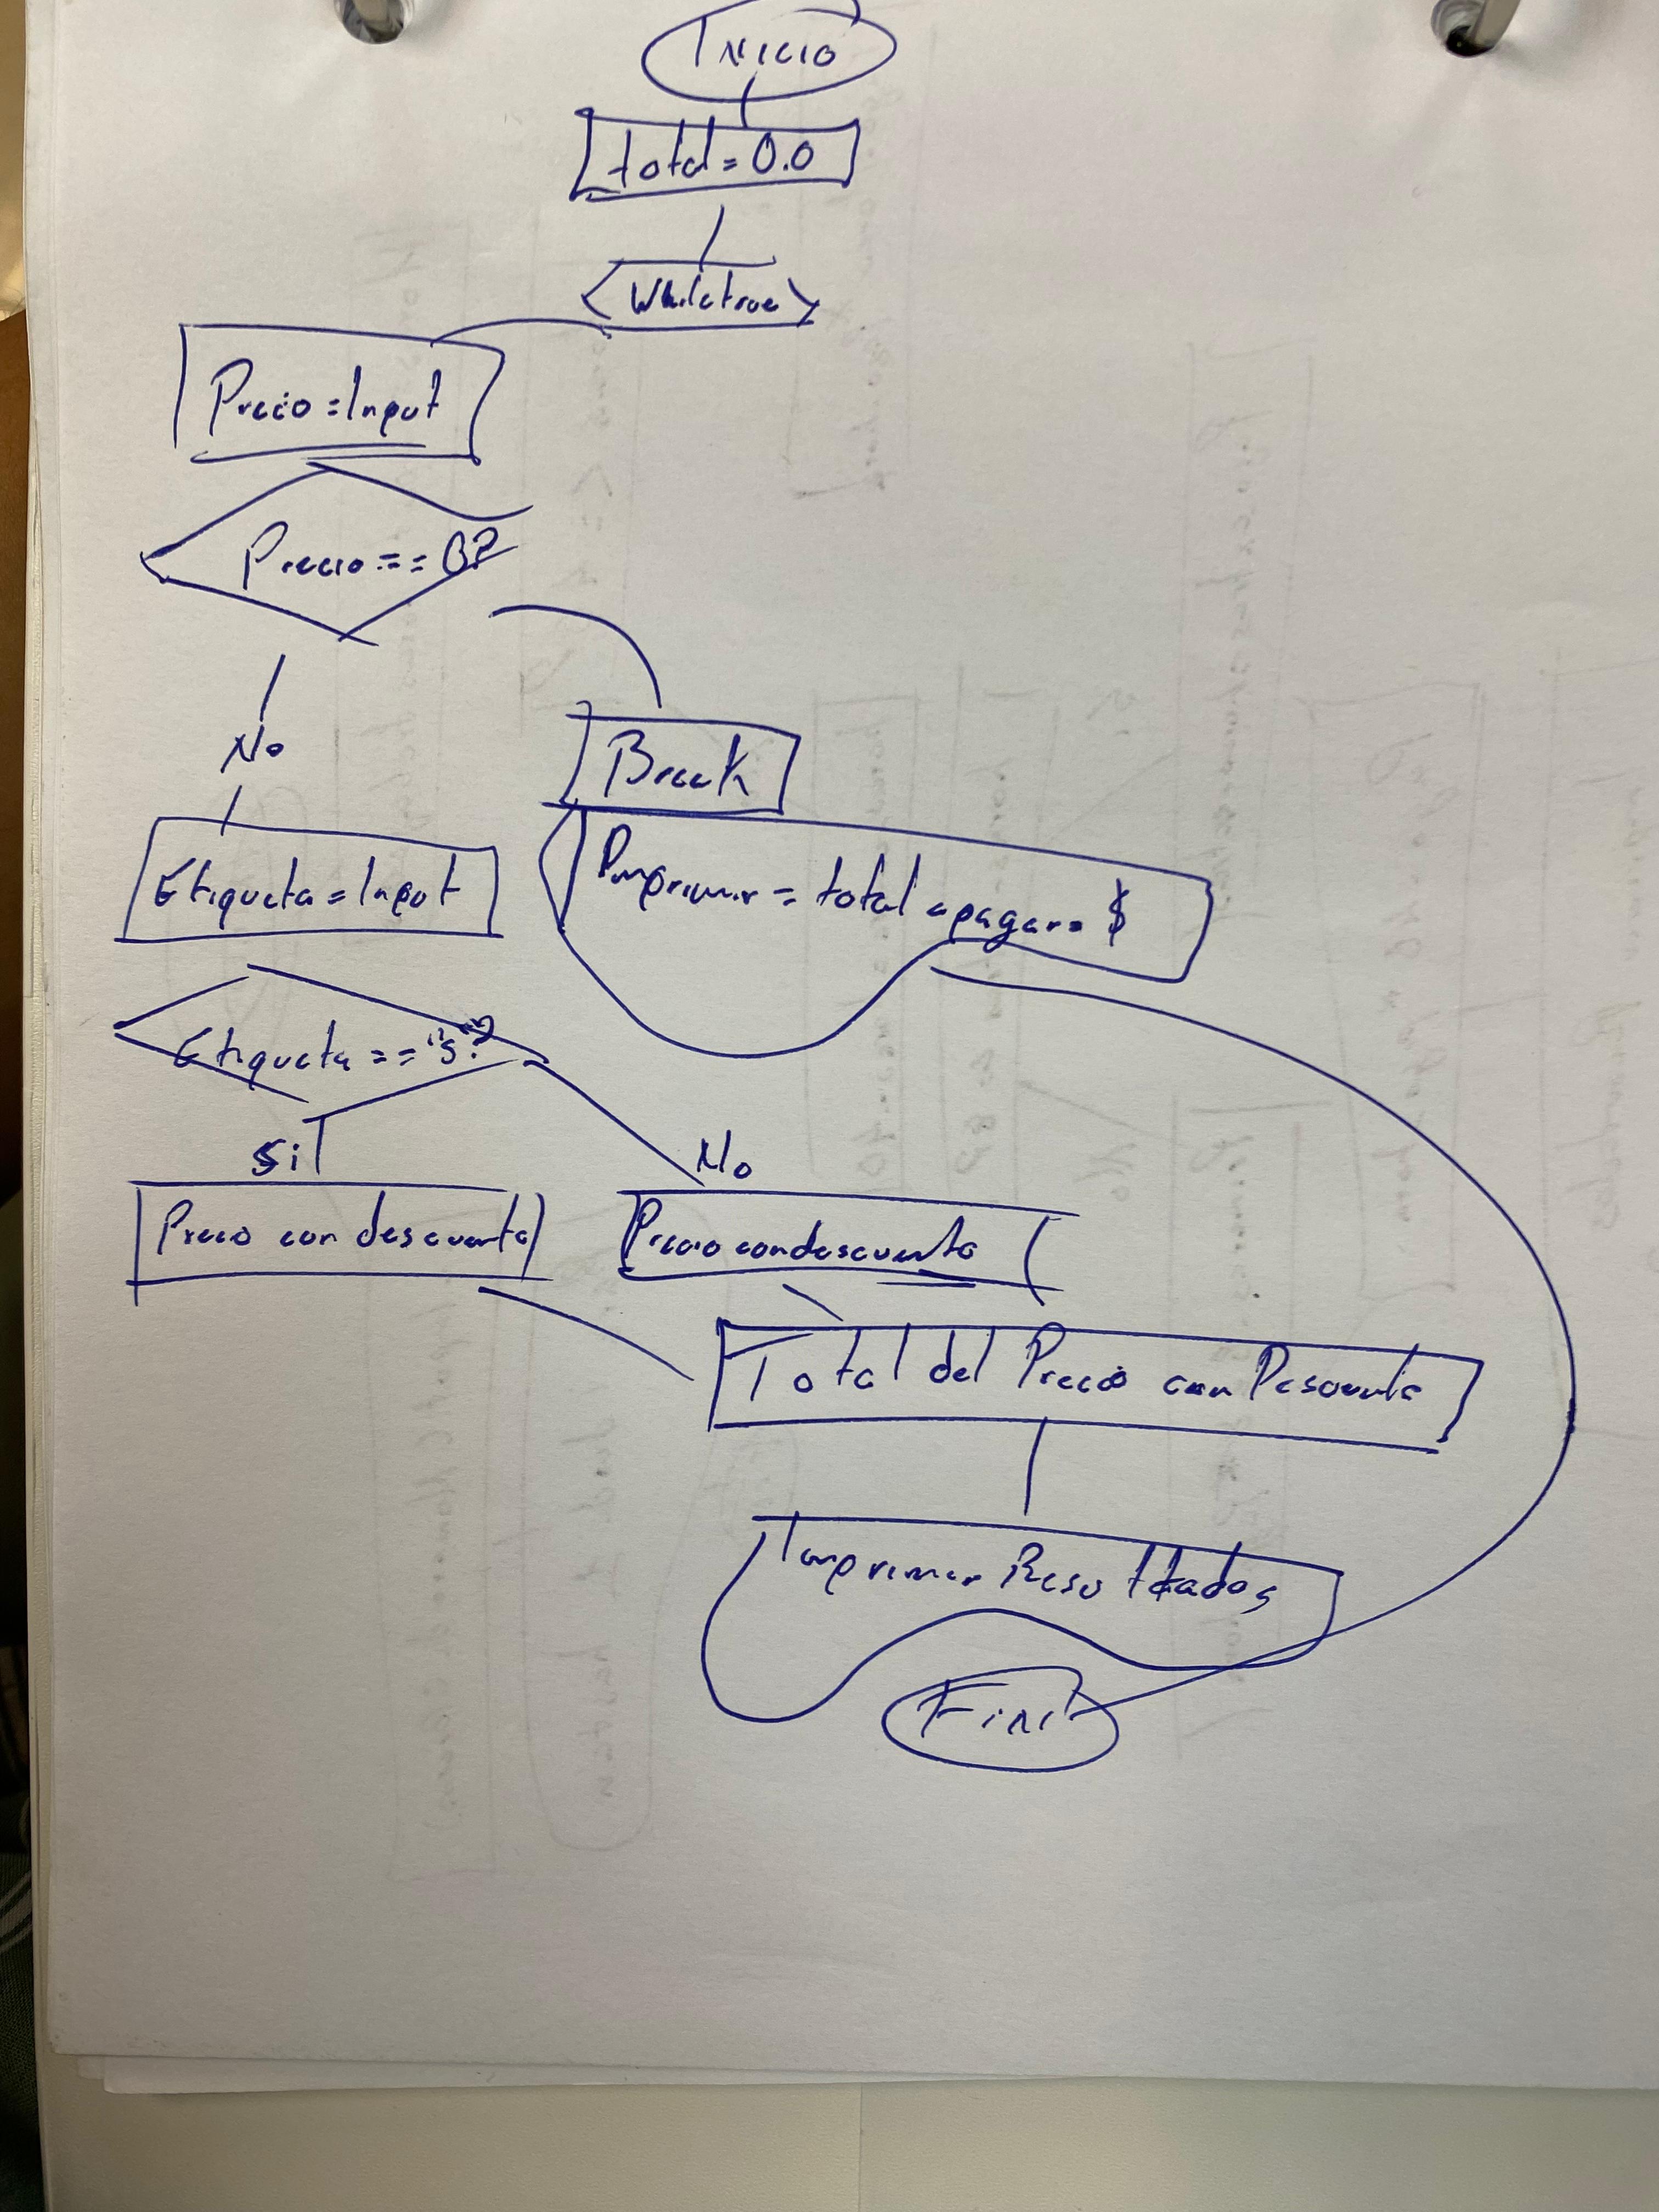 Inicio
total = 0.0
While true
Precio = Input
Precio == 0?
No
Break
Etiqueta = Input
Imprimir = total a pagar = $
Etiqueta == "s"?
Si
No
Precio con descuento
Precio con descuento
Total del Precio con Descuento
Imprimir Resultados